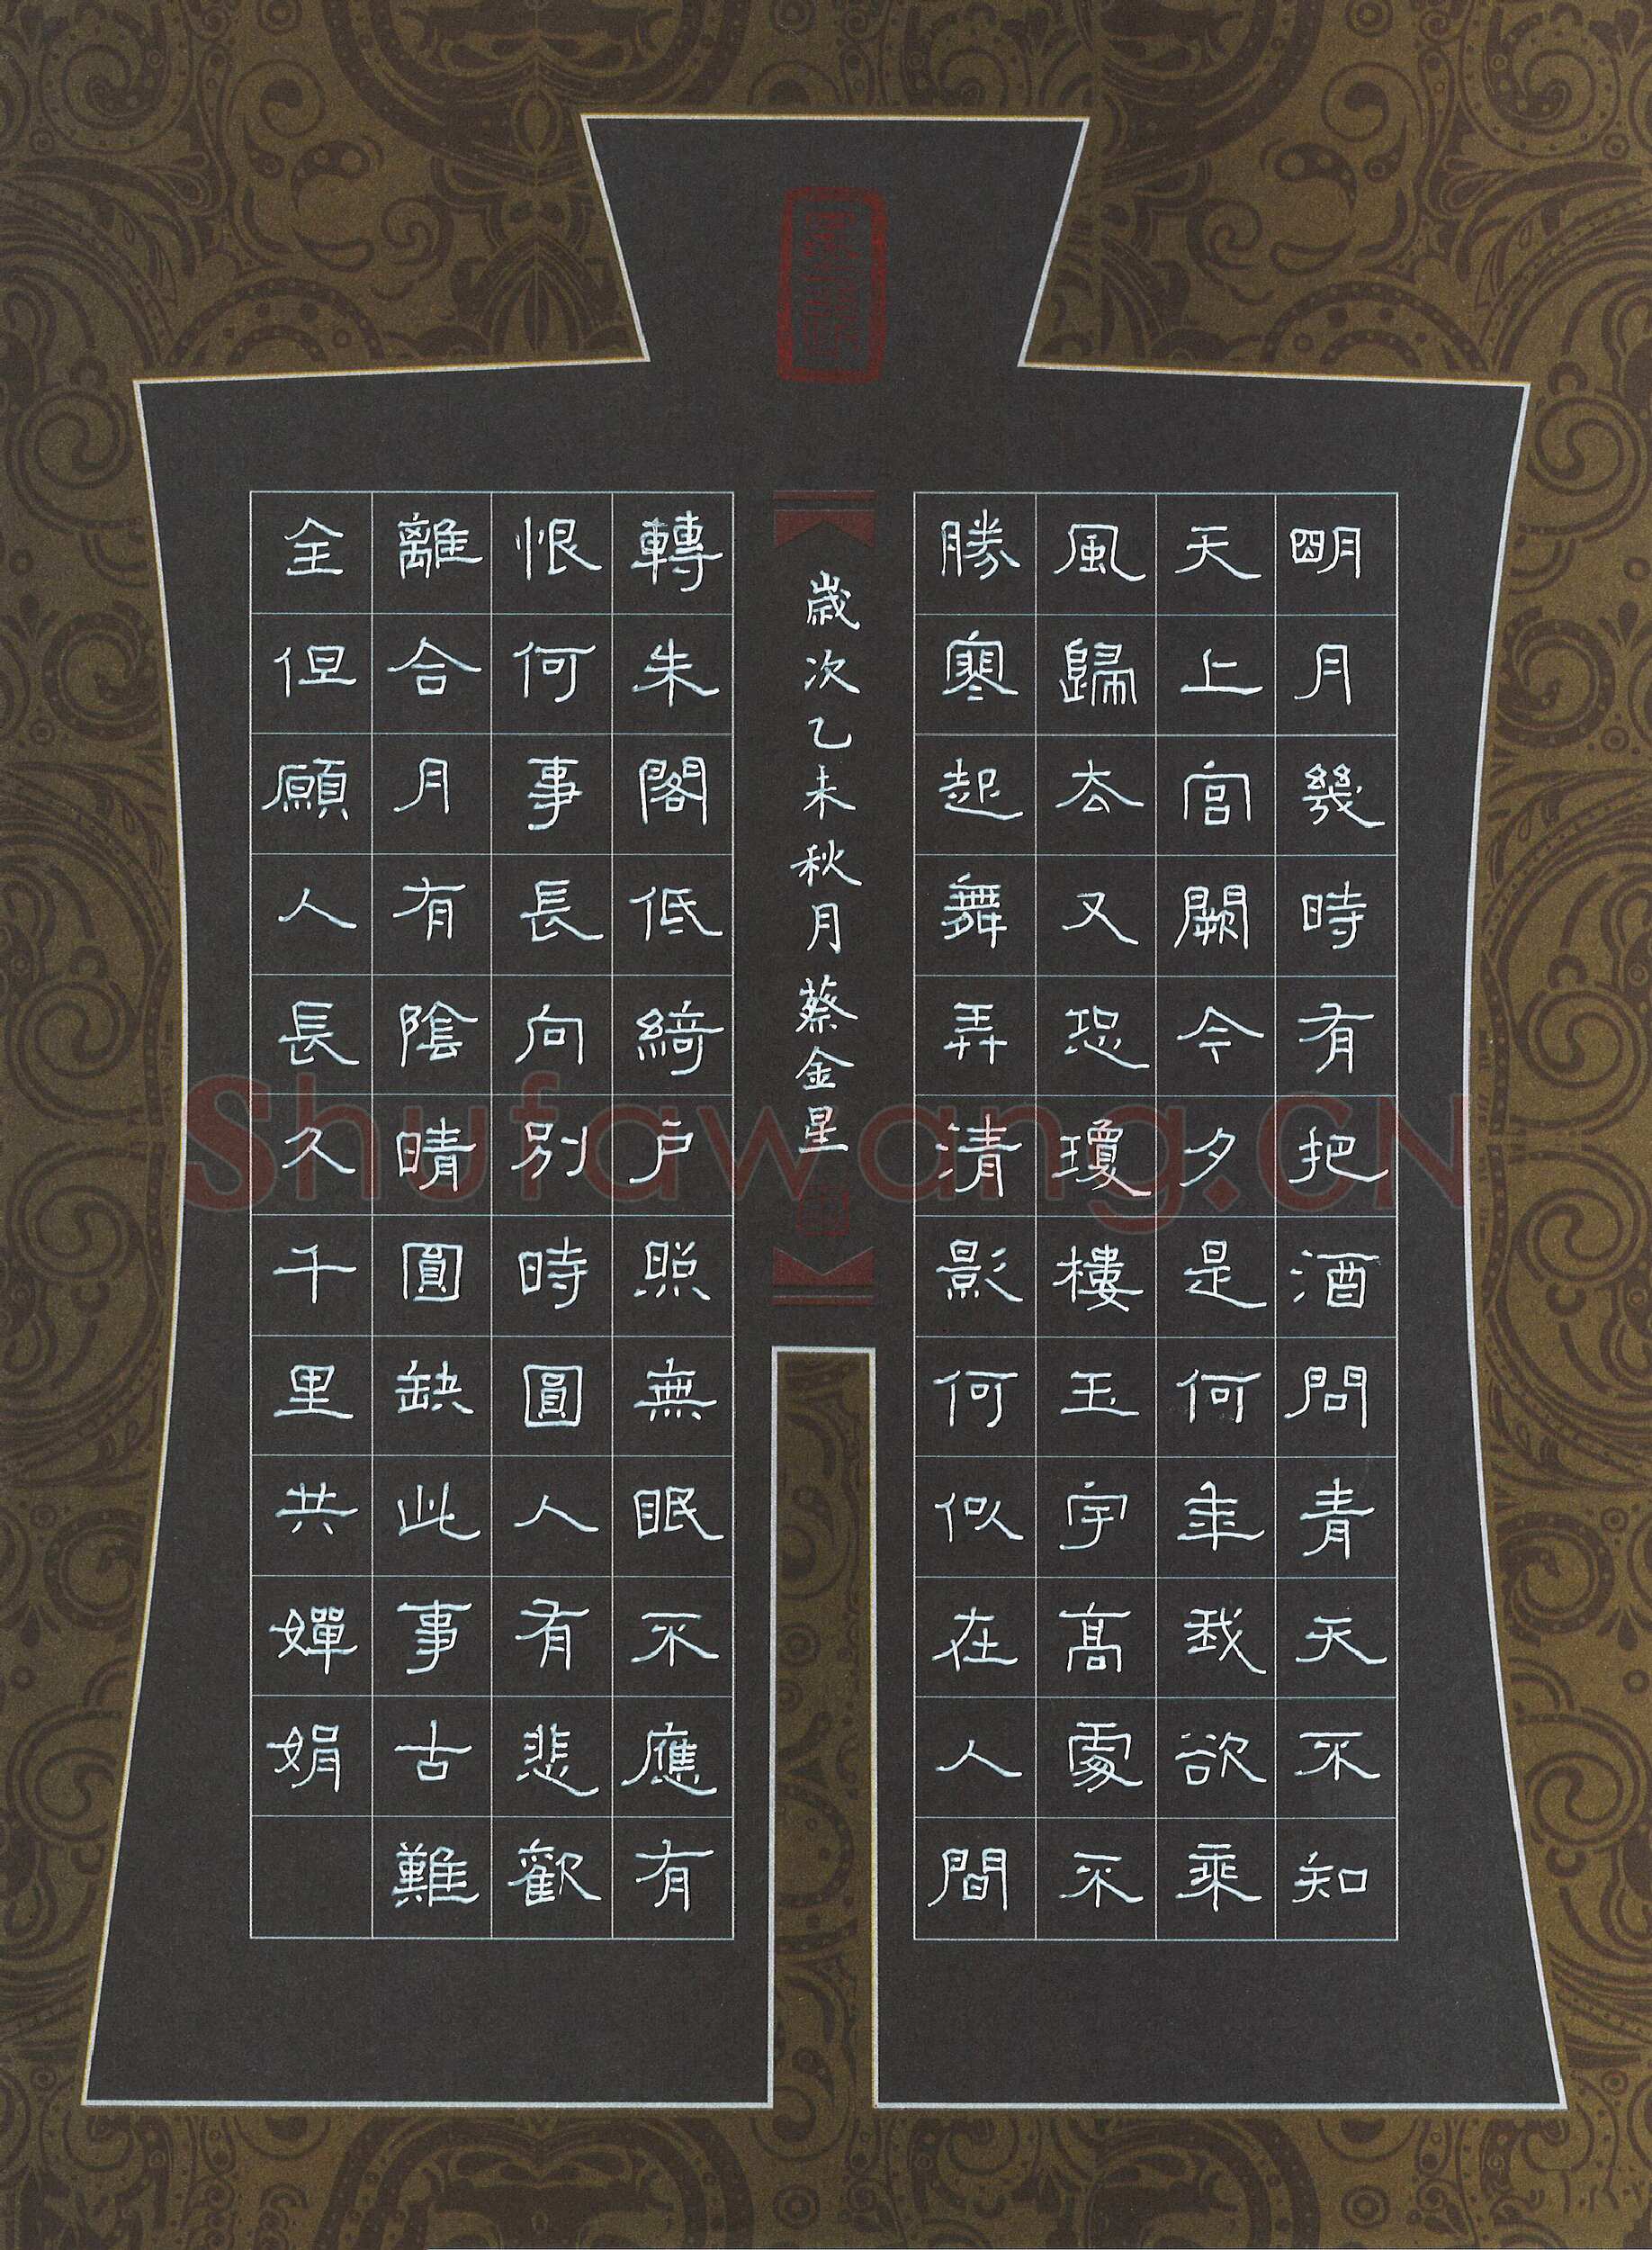 明月幾時有把酒問青天不知
天上宫闕今夕是何年我欲乘
風歸去又恐瓊樓玉宇高處不
勝寒起舞弄清影何似在人間
轉朱閣低綺户照無眠不應有
恨何事長向别時圓人有悲歡
離合月有陰晴圓缺此事古難
全但願人長久千里共嬋娟
歲次乙未秋月蔡金星
Shufawang.CN